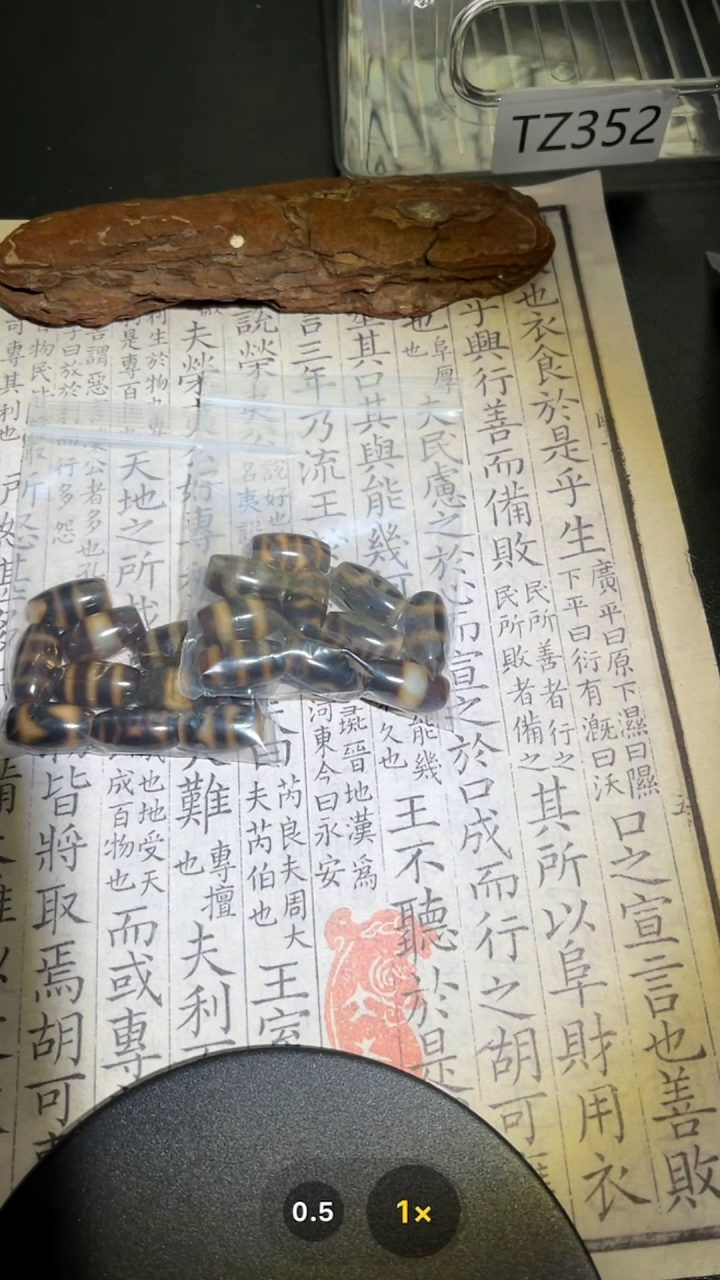 TZ352
也衣食於是乎生
廣平曰原下濕曰隰
下平曰衍有溉曰沃
口之宣言也善敗
乎興行善而備敗
民所善者行之
民所敗者備之
其所以阜財用衣
也
阜厚
也
夫民慮之於心而宣之於口成而行之胡可
其口其與能幾
能幾
久也
王不聽於是
言三年乃流王
彘晉地漢爲
河東今曰永安
說榮夷公
說好也
名夷
曰
芮良夫周大
夫芮伯也
王室
夫榮夷公好專
難
專擅
也
夫利
天地之所
也地受天
成百物也
而或專
公者多也
行多怨
皆將取焉胡可
專其利也
所怒甚多
0.5
1×